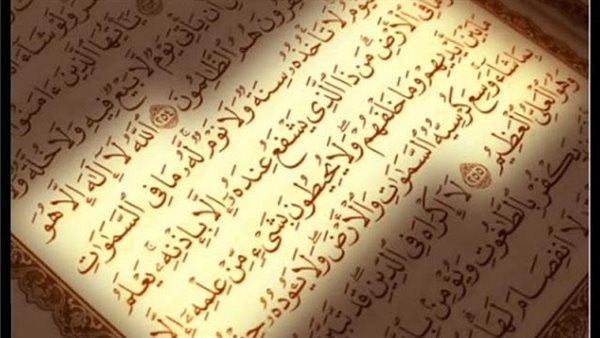 وَلَوْ شَآءَ
يَٰٓأَيُّهَا ٱلَّذِينَ ءَامَنُوٓا۟
أَن يَأْتِىَ يَوْمٌ لَّا بَيْعٌ فِيهِ وَلَا خُلَّةٌ
هُمُ ٱلظَّٰلِمُونَ ٢٥٤ ٱللَّهُ لَآ إِلَٰهَ إِلَّا هُوَ
لَا تَأْخُذُهُۥ سِنَةٌ وَلَا نَوْمٌ لَّهُۥ مَا فِى ٱلسَّمَٰوَٰتِ
وَمَا فِى ٱلْأَرْضِ مَن ذَا ٱلَّذِى يَشْفَعُ عِندَهُۥٓ إِلَّا بِإِذْنِهِۦ يَعْلَمُ
مَا بَيْنَ أَيْدِيهِمْ وَمَا خَلْفَهُمْ وَلَا يُحِيطُونَ بِشَىْءٍ مِّنْ عِلْمِهِۦٓ إِلَّا
بِمَا شَآءَ وَسِعَ كُرْسِيُّهُ ٱلسَّمَٰوَٰتِ وَٱلْأَرْضَ وَلَا يَـُٔودُهُۥ
وَهُوَ ٱلْعَلِىُّ ٱلْعَظِيمُ ٢٥٥ لَآ إِكْرَاهَ فِى ٱلدِّينِ قَد تَّبَيَّنَ
يَكْفُرْ بِٱلطَّٰغُوتِ وَيُؤْمِنۢ
لَا ٱنفِصَامَ لَهَا